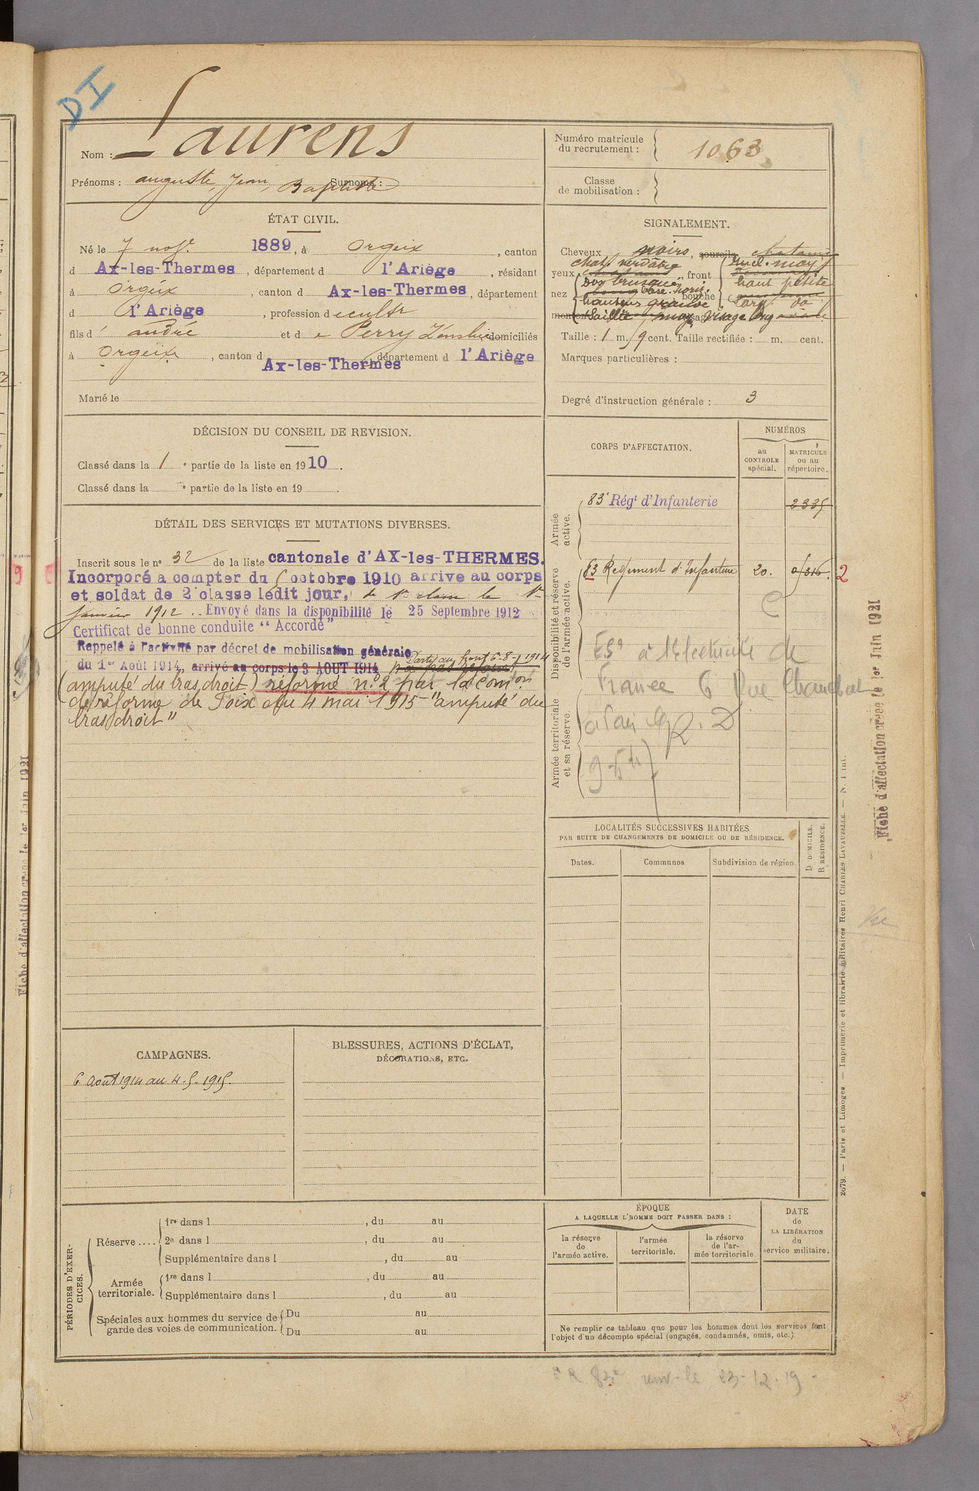 DI
Nom : Laurens
Prénoms : auguste, Jean Baptiste Surnoms :
Numéro matricule du recrutement : 1063
Classe de mobilisation :
ÉTAT CIVIL.
Né le 7 nov. 1889, à Orgeix, canton
d Ax-les-Thermes, département d l'Ariège, résidant
à Orgeix, canton d Ax-les-Thermes, département
d l'Ariège, profession d cultr
fils d' andré et d e Perry domiciliés
à Orgeix, canton d Ax-les-Thermes département d l'Ariège
Marié le
SIGNALEMENT.
Cheveux noirs, sourcils chatains
yeux chat. verdâtre, front
nez Dos bouche haut petite
menton Saillie moy. visage long
Taille : 1 m. cent. Taille rectifiée : m. cent.
Marques particulières :
Degré d'instruction générale : 3
DÉCISION DU CONSEIL DE REVISION.
Classé dans la 1 e partie de la liste en 1910.
Classé dans la e partie de la liste en 19
DÉTAIL DES SERVICES ET MUTATIONS DIVERSES.
Inscrit sous le n° 32 de la liste cantonale d'AX-les-THERMES.
Incorporé a compter du 5 octobre 1910 arrive au corps
et soldat de 2e classe ledit jour, de 1e classe le 1er
Janvier 1912. Envoyé dans la disponibilité le 25 Septembre 1912
Certificat de bonne conduite "Accordé"
Rappelé à l'activité par décret de mobilisation générale
du 1er Août 1914, arrivé au corps le 3 AOUT 1914 Parti au front 6-8-1914
(amputé du bras droit) réformé n° 2 par la Comon
de réforme de Foix du 4 mai 1915 "amputé du
bras droit"
CORPS D'AFFECTATION.
NUMÉROS
au CONTROLE spécial.
MATRICULE ou au répertoire.
Armée active.
83e Régt d'Infanterie 2335
Disponibilité et réserve de l'armée active.
83 Régiment d'infanterie 20. 0/316. 2
C
Armée territoriale et sa réserve.
Électricité de
France 6 Rue
LOCALITÉS SUCCESSIVES HABITÉES
PAR SUITE DE CHANGEMENTS DE DOMICILE OU DE RÉSIDENCE.
Dates. Communes Subdivision de région.
D. DOMICILE.
R. RÉSIDENCE.
CAMPAGNES.
6 août 1914 au 4.5.1915.
BLESSURES, ACTIONS D'ÉCLAT,
DÉCORATIONS, ETC.
PÉRIODES D'EXERCICES.
Réserve....
1re dans l , du au
2e dans l , du au
Supplémentaire dans l , du au
Armée territoriale.
1re dans l , du au
Supplémentaire dans l , du au
Spéciales aux hommes du service de garde des voies de communication.
Du au
Du au
ÉPOQUE
A LAQUELLE L'HOMME DOIT PASSER DANS :
la réserve de l'armée active.
l'armée territoriale.
la réserve de l'armée territoriale
DATE de LA LIBÉRATION du service militaire.
Ne remplir ce tableau que pour les hommes dont les services font
l'objet d'un décompte spécial (engagés, condamnés, omis, etc.)
2079. — Paris et Limoges — Imprimerie et librairie militaires Henri CHARLES LAVAUZELLE. —
Fiche d'affectation créée le 1er Juin 1921
Fiche d'affectation créée le 1er Juin 1921
Vu
le 23-12-19